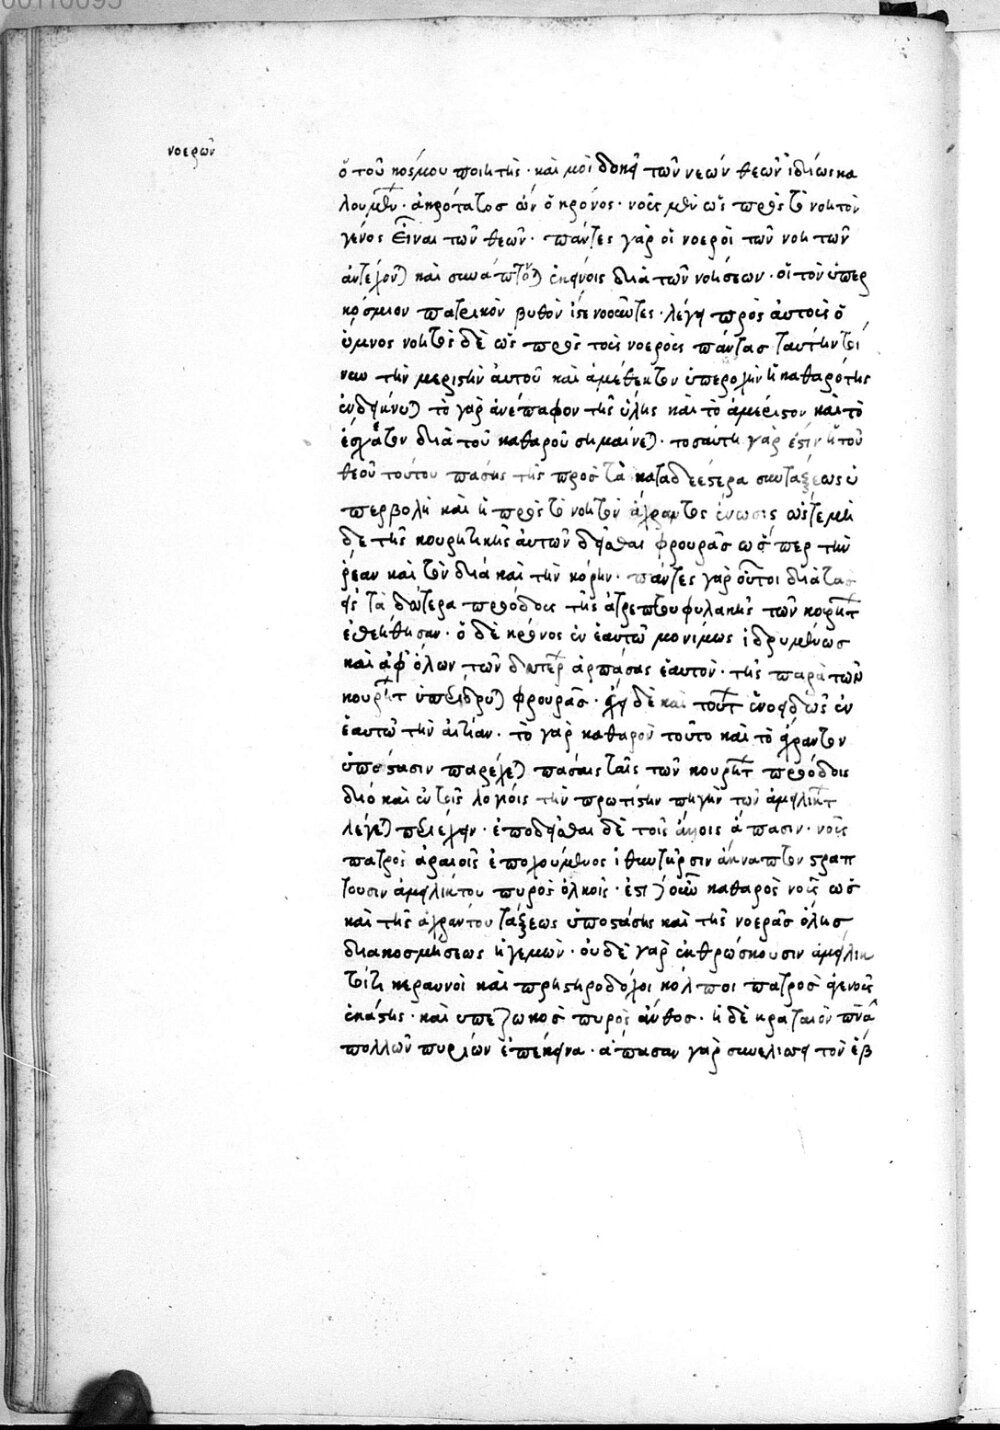 νοερῶν
ὁ τοῦ κόσμου ποιητής · καί μοι δοκεῖ τῶν νεών θεῶν ἰδίως κα
λουμένων · ἀκρότατος ὢν ὁ κρόνος · νοῦς μὲν ὡς πρὸς τὸ νοητὸν
γένος εἶναι τῶν θεῶν · πάντες γὰρ οἱ νοεροὶ τῶν νοητῶν
ἀντέχονται καὶ συνάπτονται ἐκείνοις διὰ τῶν νοήσεων · οἳ τὸν ὑπερ
κόσμιον πατρικὸν βυθὸν ἴστε νοοῦντες · λέγει πρὸς αὐτοὺς ὁ
ὕμνος νοητὸς δὲ ὡς πρὸς τοὺς νοεροὺς πάντας ταύτην τοί
νυν τὴν μεριστὴν αὐτοῦ καὶ ἀμέθεκτον ὑπεροχὴν ἡ καθαρότης
ἐνδείκνυται τὸ γὰρ ἀνέπαφον τῆς ὕλης καὶ τὸ ἀμέριστον καὶ τὸ
ἄσχετον διὰ τοῦ καθαροῦ σημαίνεται · τοσαύτη γάρ ἐστιν ἡ τοῦ
θεοῦ τούτου πάσης τῆς πρὸς τὰ καταδεέστερα συντάξεως ὑ
περβολὴ καὶ ἡ πρὸς τὸ νοητὸν ἄχραντος ἕνωσις ὥστε μη
δὲ τῆς κουρητικῆς αὐτὸν δεῖσθαι φρουρᾶς ὥσπερ τὴν
ῥέαν καὶ τὸν δία καὶ τὴν κόρην · πάντες γὰρ οὗτοι διὰ τὰς
εἰς τὰ δεύτερα προόδους τῆς ἀτρέπτου φυλακῆς τῶν κορήτων
ἐδεήθησαν · ὁ δὲ κρόνος ἐν ἑαυτῷ μονίμως ἱδρυμένος
καὶ ἀφ' ὅλων τῶν δευτέρων ἁρπάσας ἑαυτὸν · τῆς παρὰ τῶν
κουρήτων ὑπερίδρυται φρουρᾶς · ἔχει δὲ καὶ τούτων ἑνοειδῶς ἐν
ἑαυτῷ τὴν αἰτίαν · τὸ γὰρ καθαρὸν τοῦτο καὶ τὸ ἄχραντον
ὑπόστασιν παρέχεται πάσαις ταῖς τῶν κουρήτων προόδοις
διὸ καὶ ἐν τοῖς λογίοις τὴν πρωτίστην πηγὴν τῶν ἀμειλίκτων
λέγεται περιέχειν · ἐποχεῖσθαι δὲ τοῖς ἄλλοις ἅπασιν · νοῦς
πατρὸς ἀραιοῖς ἐποχούμενος ἰθυντῆρσιν ἀκνάπτον στραπ
τουσιν ἀμειλίκτου πυρὸς ὁλκοῖς · ἔστι γοῦν καθαρὸς νοῦς ὡς
καὶ τῆς ἀχράντου τάξεως ὑποστάσης καὶ τῆς νοερᾶς ὅλης
διακοσμήσεως ἡγεμών · οὐδὲ γὰρ ἐκθρώσκουσιν ἀμείλικ
τοί τε κεραυνοὶ καὶ πρηστηροδόχοι κόλποι πατρὸς γενοῦς
ἑκάτης · καὶ ὑπεζωκὸς πυρὸς ἄνθος · ἡ δὲ κραταιὸν πνεῦμα
πόλων πυρίων ἐπέκεινα · ἅπασαν γὰρ συνελίσσει τὸν ἑβ